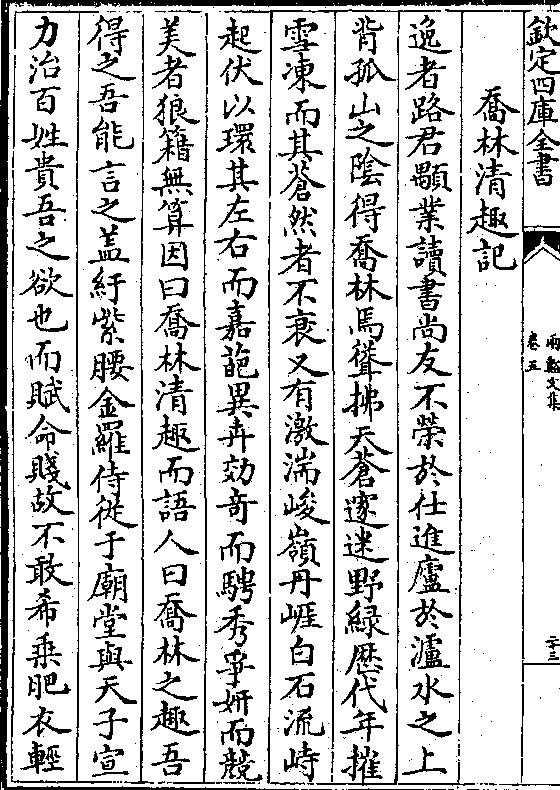 欽定四庫全書
兩谿文集
卷五
二十三
喬林清趣記
逸者路君顒業讀書尚友不榮於仕進廬於瀘水之上
背孤山之陰得喬林焉聳拂天蒼邃迷野緑歷代年摧
雪凍而其蒼然者不衰又有激湍峻嶺丹崕白石流峙
起伏以環其左右而嘉葩異卉効竒而騁秀爭妍而競
美者狼籍無算因曰喬林清趣而語人曰喬林之趣吾
得之吾能言之盖紆紫腰金羅侍從于廟堂與天子宣
力治百姓貴吾之欲也而賦命賤故不敢希乘肥衣輕